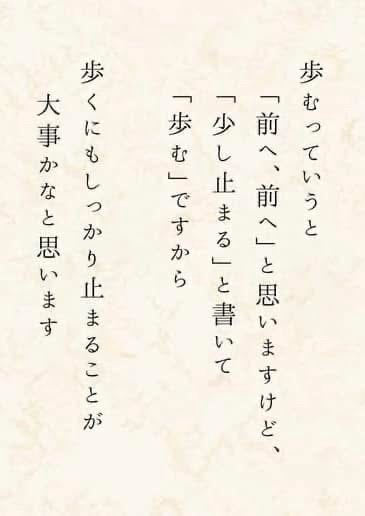 歩むっていうと
「前へ、前へ」と思いますけど、
「少し止まる」と書いて
「歩む」ですから
歩くにもしっかり止まることが
大事かなと思います